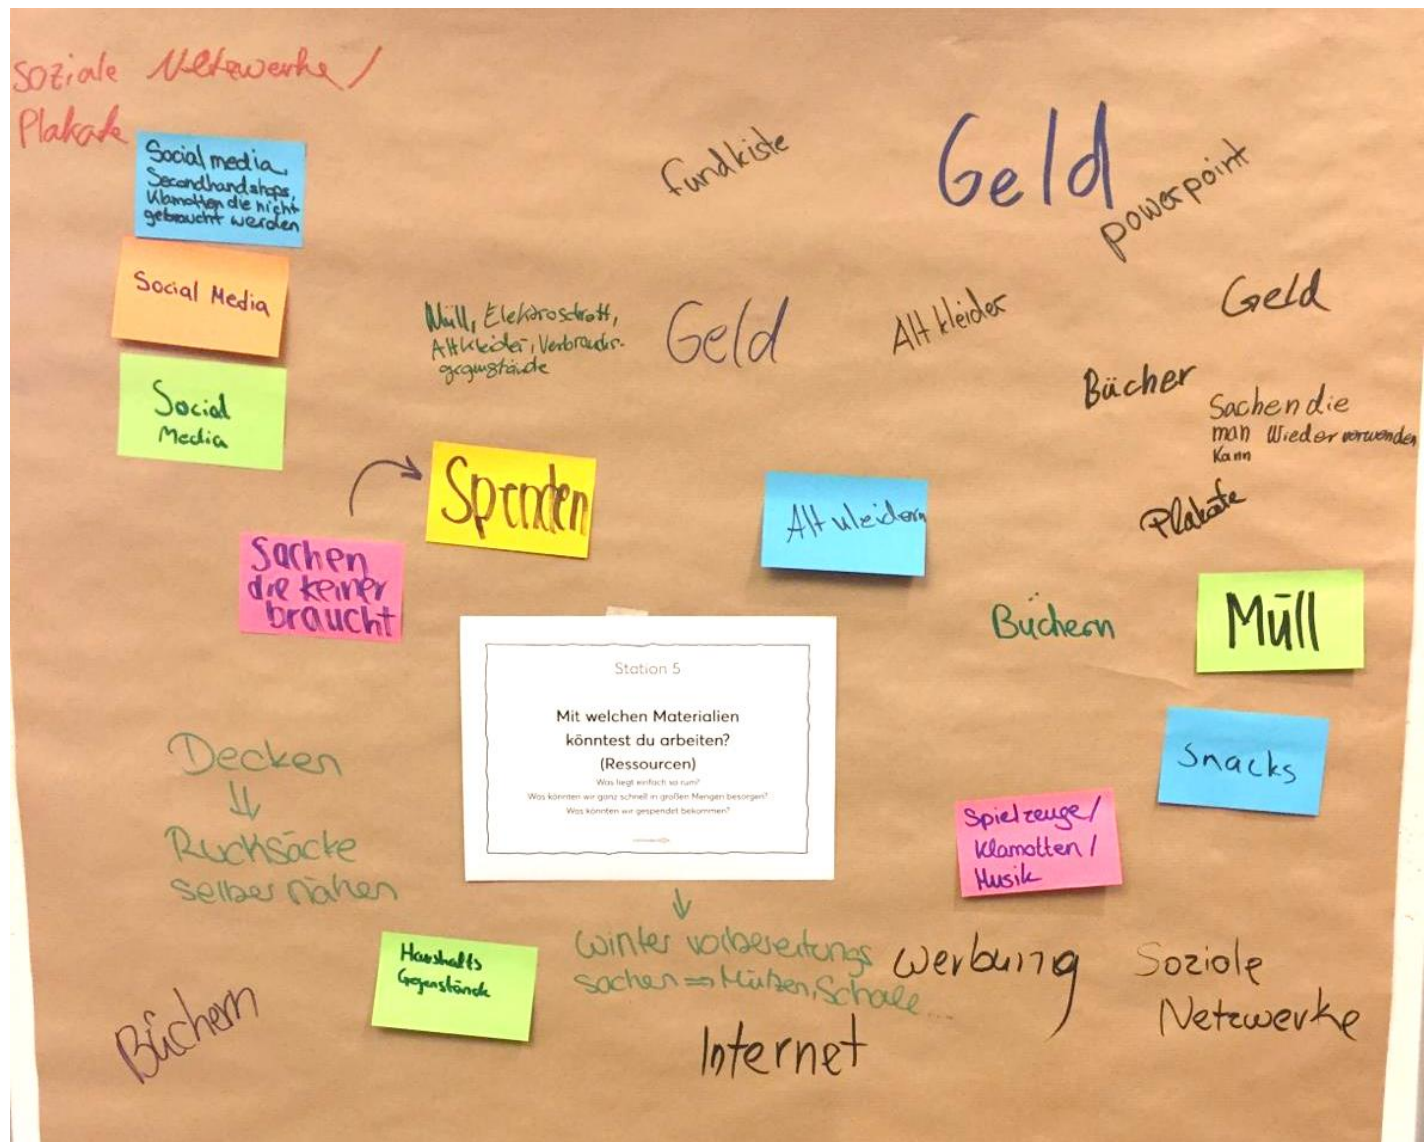 soziale Netzwerke /
Plakate
Social media,
Secondhandshops,
Klamotten die nicht
gebraucht werden
Social Media
Social
Media
Fundkiste
Geld
powerpoint
Müll, Elektroschrott,
Altkleider, Verbrauchs-
gegenstände
Geld
Altkleider
Geld
Bücher
Sachen die
man Wieder verwenden
Kann
Plakate
Spenden
Sachen
die keiner
braucht
Altkleidern
Büchern
Müll
Snacks
Spielzeuge/
Klamotten /
Musik
Station 5
Mit welchen Materialien
könntest du arbeiten?
(Ressourcen)
Was liegt einfach so rum?
Was könnten wir ganz schnell in großen Mengen besorgen?
Was könnten wir gespendet bekommen?
Decken
⇓
Rucksäcke
selber nähen
Haushalts
Gegenstände
Winter vorbereitungs
sachen => Mützen, Schale...
Werbung
Soziale
Netzwerke
Internet
Büchern